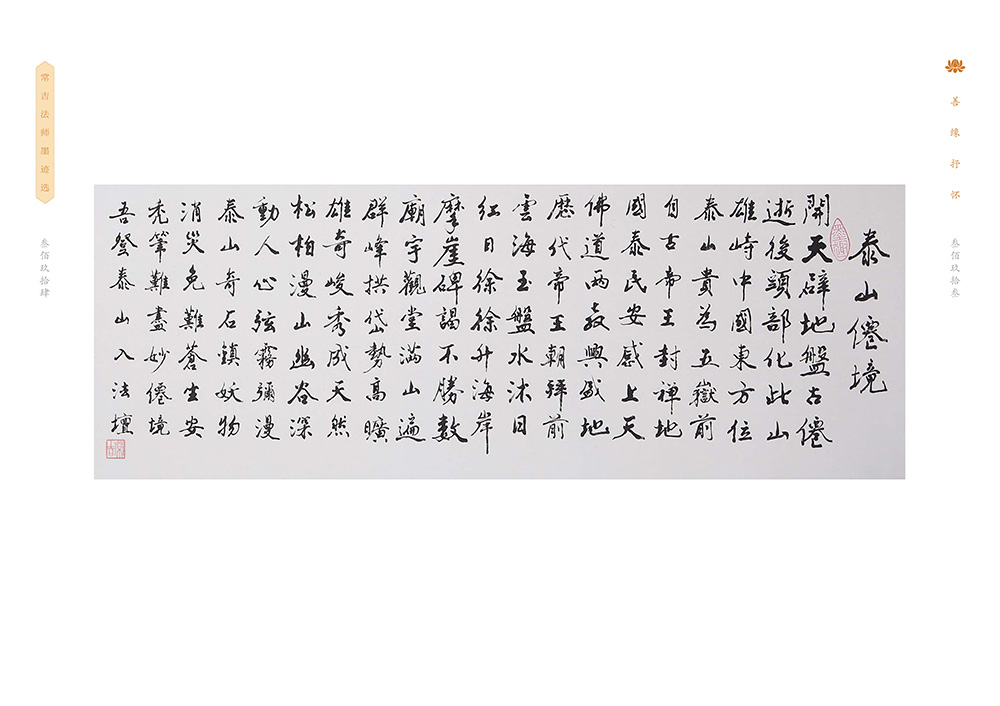 善缘抒怀
叁佰玖拾叁
泰山僊境
開天辟地盤古僊
逝後頭部化此山
雄峙中國東方位
泰山貴為五嶽前
自古帝王封禅地
國泰民安感上天
佛道兩教興盛地
歷代帝王朝拜前
雲海玉盤水沐日
红日徐徐升海岸
摩崖碑謁不勝數
廟宇觀堂滿山遍
群峰拱岱勢高曠
雄奇峻秀成天然
松柏漫山幽谷深
動人心弦霧彌漫
泰山奇石鎮妖物
消災免難蒼生安
秃筆難盡妙僊境
吾登泰山入法壇
常吉法师墨迹选
叁佰玖拾肆